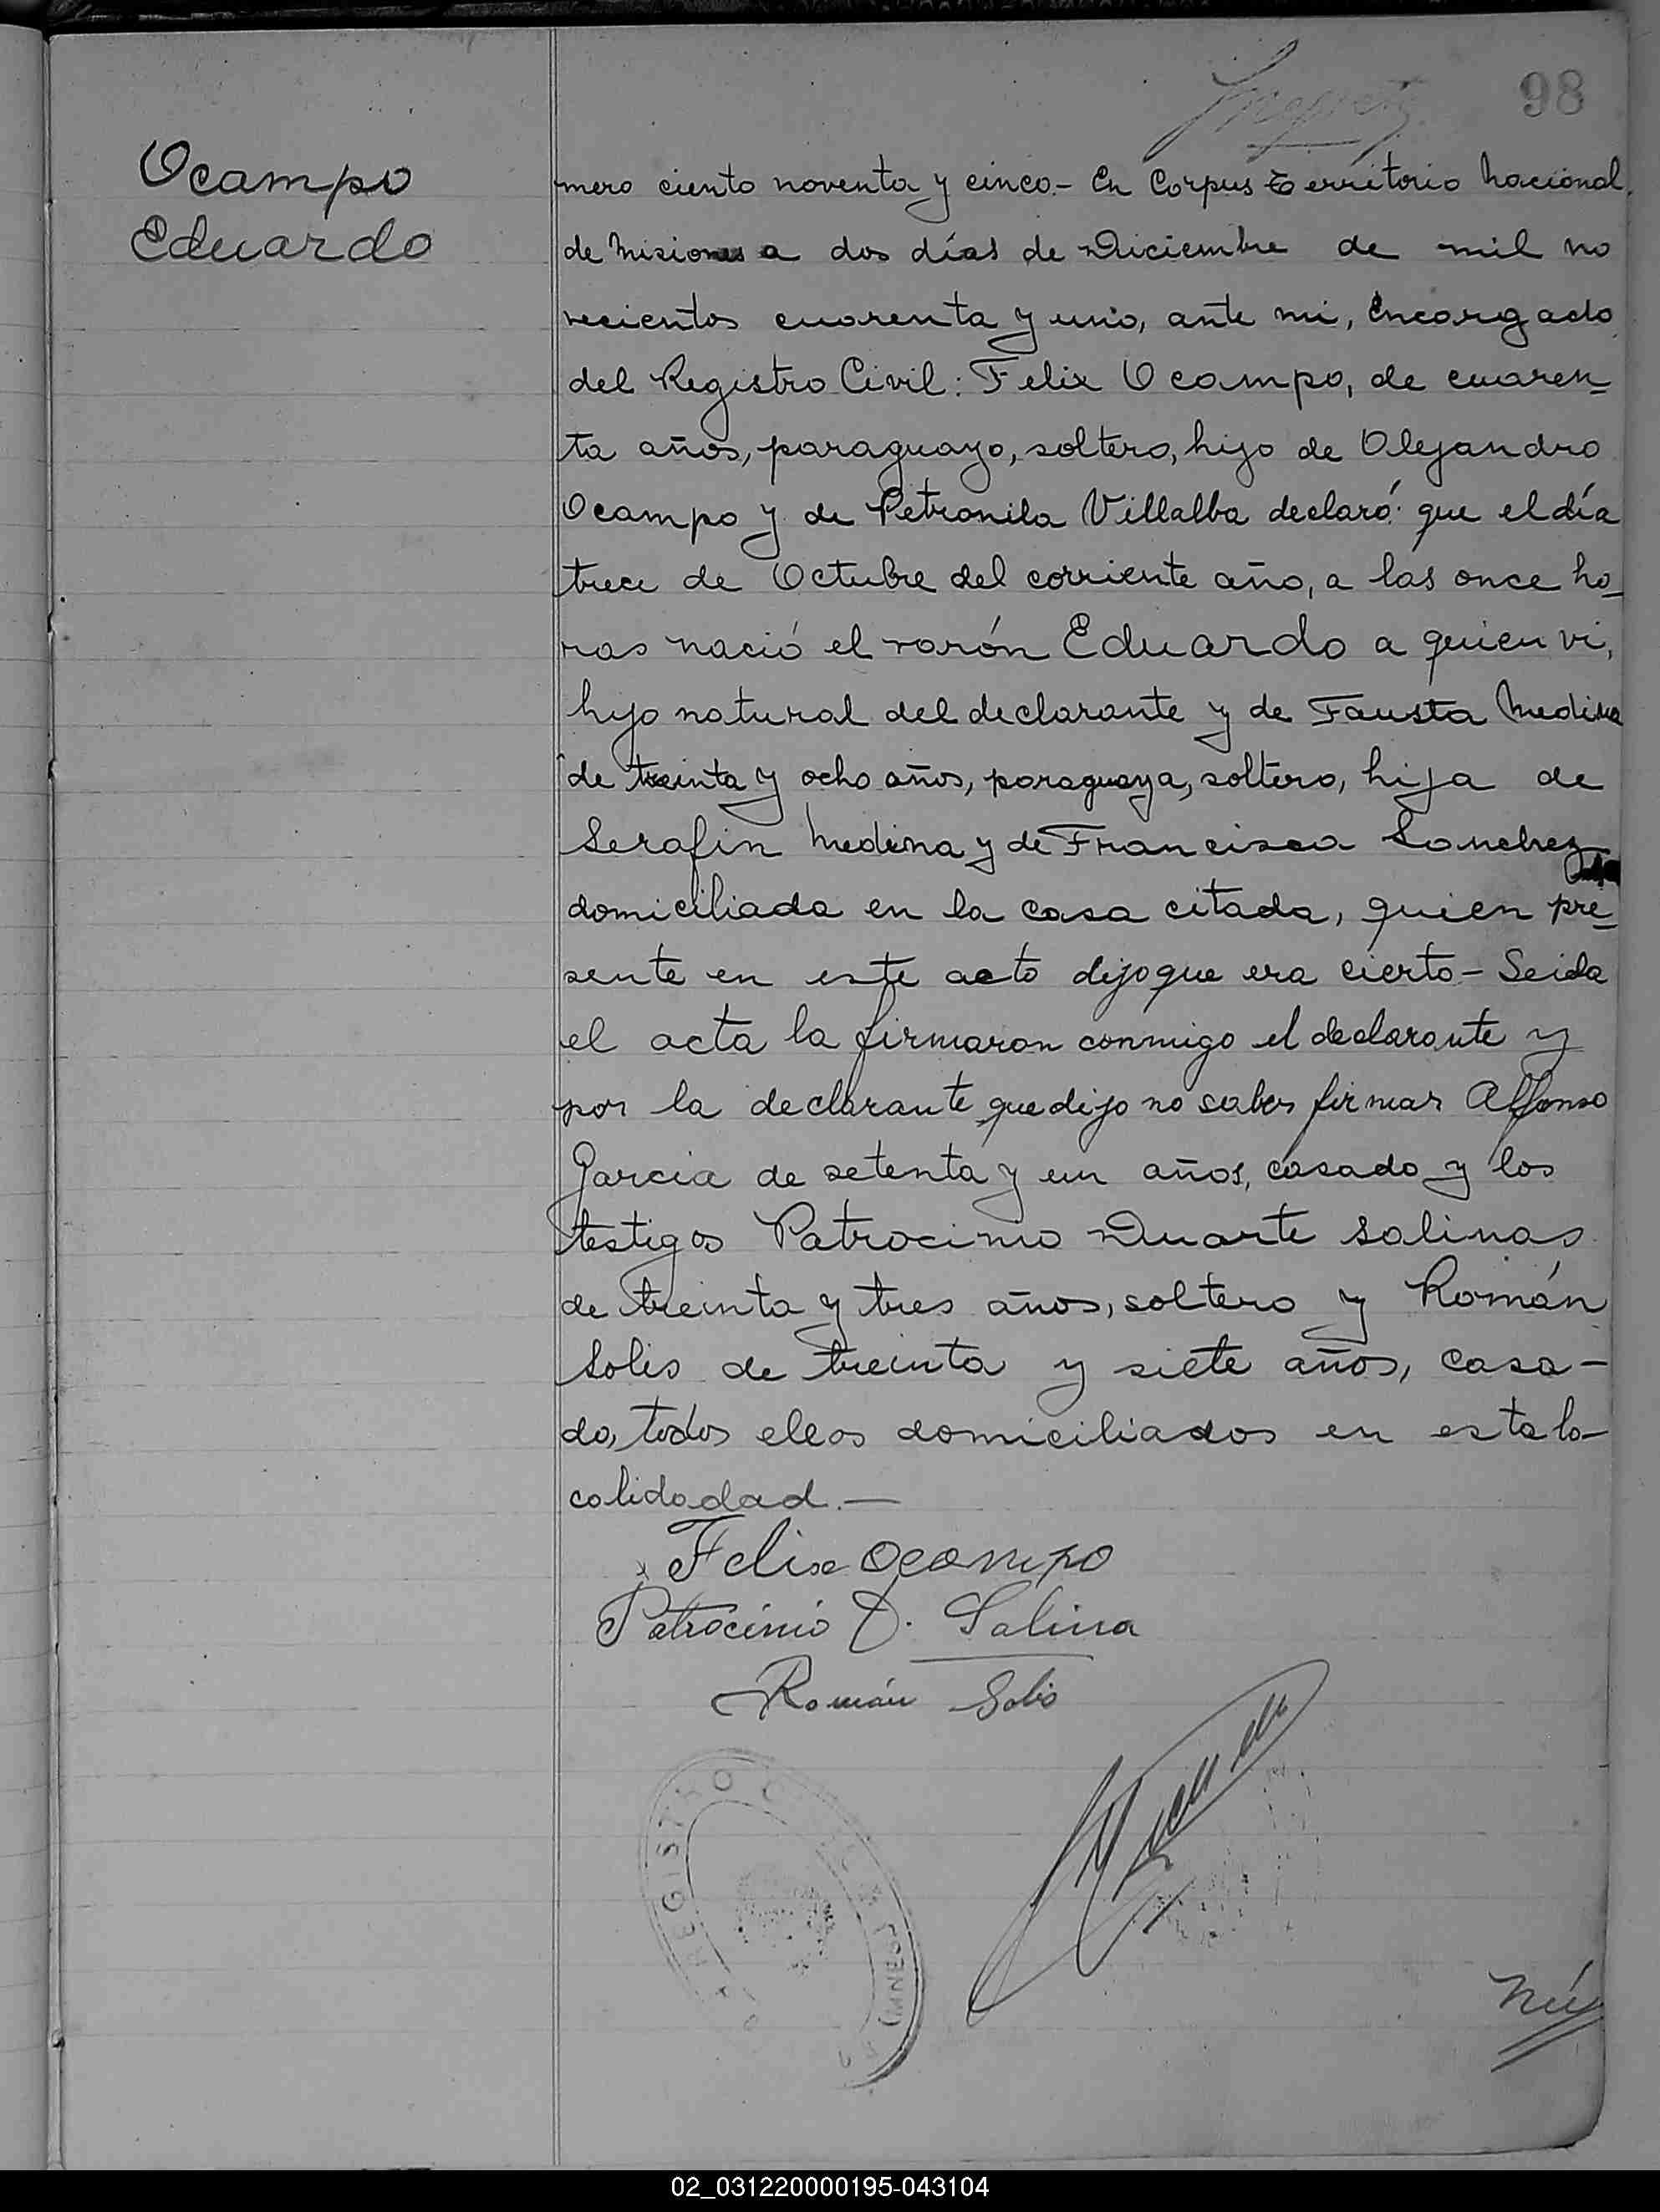 98
Ocampo
Eduardo
mero ciento noventa y cinco.- En Corpus Territorio Nacional
de Misiones a dos días de Diciembre de mil no
vecientos cuarenta y uno, ante mi, Encargado
del Registro Civil: Felix Ocampo, de cuaren-
ta años, paraguayo, soltero, hijo de Alejandro
Ocampo y de Petronila Villalba declaró: que el día
trece de Octubre del corriente año, a las once ho-
ras nació el varón Eduardo a quien vi,
hijo natural del declarante y de Fausta Medina
de treinta y ocho años, paraguaya, soltera, hija de
Serafin Medina y de Francisca Sanchez
domiciliada en la casa citada, quien pre-
sente en este acto dijo que era cierto - Leida
el acta la firmaron conmigo el declarante y
por la declarante que dijo no saber firmar Alfonso
Garcia de setenta y un años, casado y los
testigos Patrocinio Duarte Salinas
de treinta y tres años, soltero y Román
Solis de treinta y siete años, casa-
do, todos ellos domiciliados en esta lo-
calidadad.-
Felix Ocampo
Patrocinio D. Salina
Román Solis
REGISTRO
Nú
02_031220000195-043104